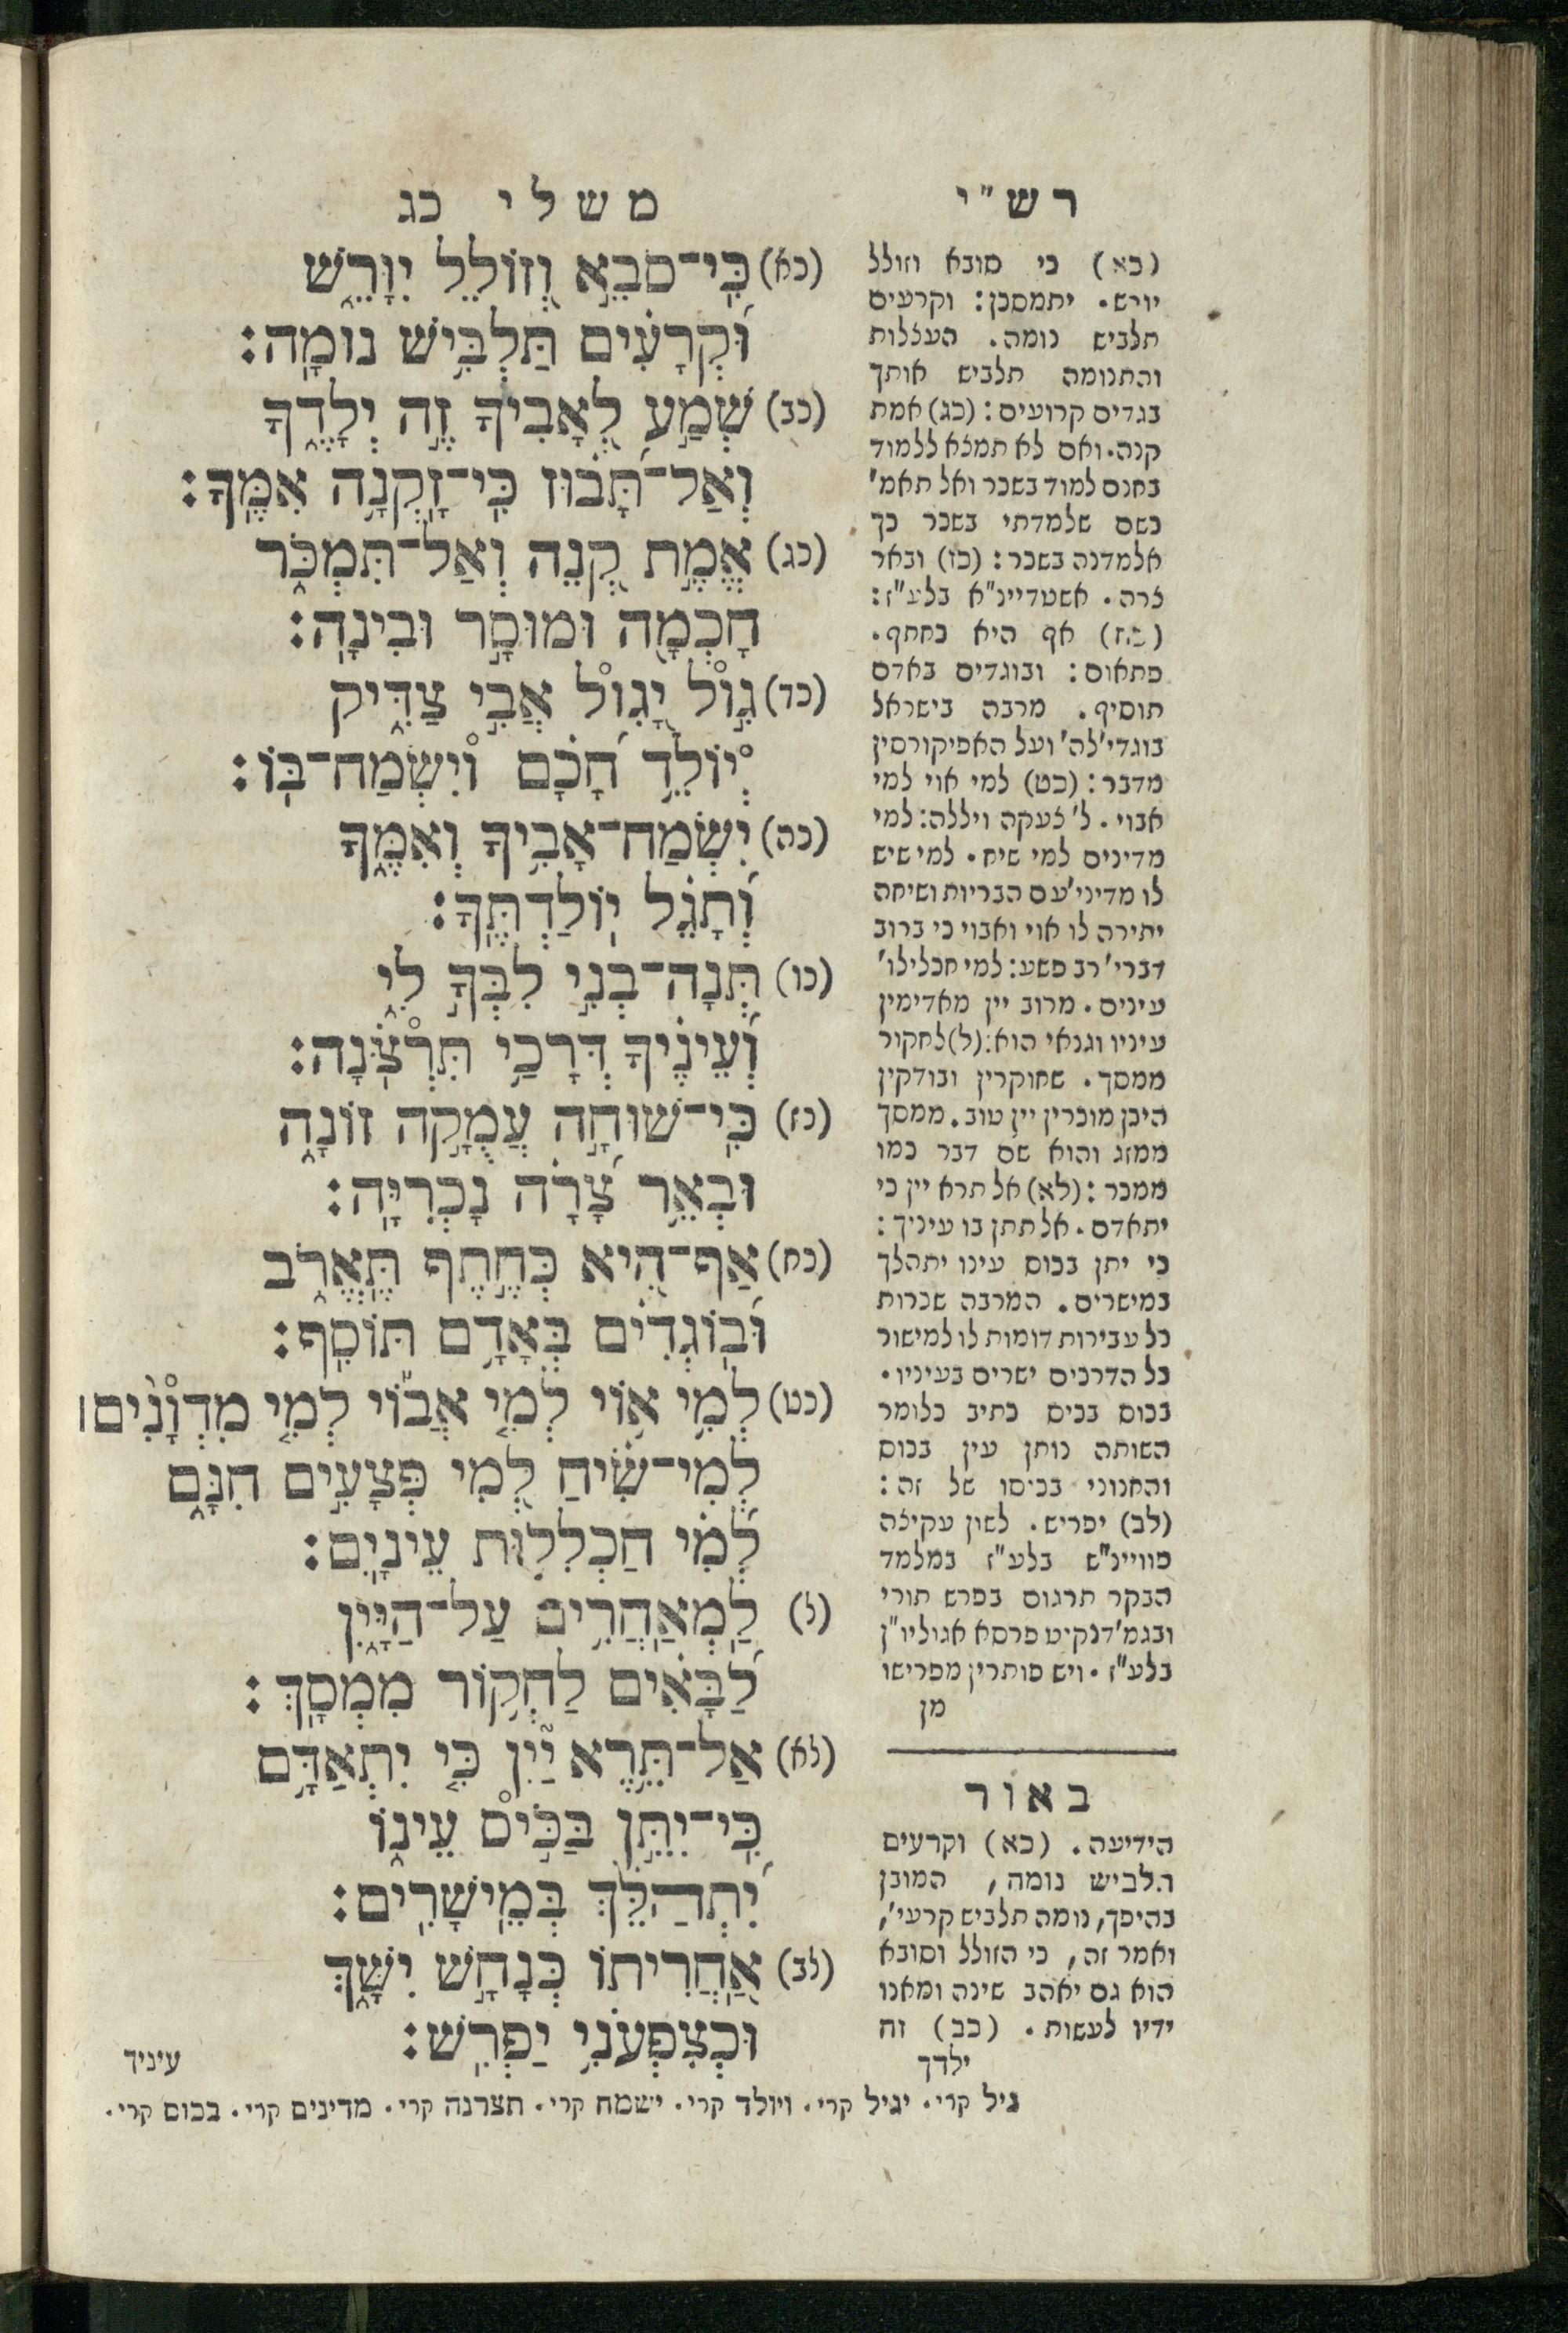 רש״י
(כא) כי סובא וזולל
יורש. יתמסכן: וקרעים
תלביש נומה. העצלות
והתנומה תלביש אותך
בגדים קרועים: (כג) אמת
קנה. ואם לא תמצא ללמוד
בחנם למוד בשכר ואל תאמ׳
כשם שלמדתי בשכר כך
אלמדנה בשכר: (כז) ובאר
צרה. אשטריינ״א בלע״ז:
(כח) אף היא כחתף.
פתאום: ובוגדים באדם
תוסיף. מרבה בישראל
בוגדי׳ לה׳ ועל האפיקורסין
מדבר: (כט) למי אוי למי
אבוי. ל׳ צעקה ויללה: למי
מדינים למי שיח. למי שיש
לו מדיני׳ עם הבריות ושיחה
יתירה לו אוי ואבוי כי ברוב
דברי׳ רב פשע: למי חכלילו׳
עינים. מרוב יין מאדימין
עיניו וגנאי הוא: (ל) לחקור
ממסך. שחוקרין ובודקין
היכן מוכרין יין טוב. ממסך
ממזג והוא שם דבר כמו
ממכר: (לא) אל תרא יין כי
יתאדם. אל תתן בו עיניך:
כי יתן בכוס עינו יתהלך
במישרים. המרבה שכרות
כל עבירות דומות לו למישור
כל הדרכים ישרים בעיניו.
בכוס בכיס כתיב כלומר
השותה נותן עין בכוס
והחנוני בכיסו של זה:
(לב) יפריש. לשון עקיצה
פוויינ״ש בלע״ז במלמד
הבקר תרגום בפרש תורי
ובגמ׳ דנקיט פרסא אגוליו״ן
בלע״ז. ויש פותרין מפרישו
מן
באור
הידיעה. (כא) וקרעים
תלביש נומה, המובן
בהיפך, נומה תלביש קרעי׳,
ואמר זה, כי הזולל וסובא
הוא גם יאהב שינה ומאנו
ידיו לעשות. (כב) זה
ילדך
משלי כג
(כא) כִּי־סֹבֵ֣א וְ֭זוֹלֵל יִוָּרֵ֑שׁ
וּ֝קְרָעִ֗ים תַּלְבִּ֥ישׁ נוּמָֽה׃
(כב) שְׁמַ֣ע לְ֭אָבִיךָ זֶ֣ה יְלָדֶ֑ךָ
וְאַל־תָּ֝ב֗וּז כִּֽי־זָקְנָ֥ה אִמֶּֽךָ׃
(כג) אֱמֶ֣ת קְ֭נֵה וְאַל־תִּמְכֹּ֑ר
חָכְמָ֖ה וּמוּסָ֣ר וּבִינָֽה׃
(כד) גִּ֣וֹל יָ֭גִוֹל אֲבִ֣י צַדִּ֑יק
יְוֹלֵ֥ד חָ֝כָ֗ם וְיִשְׂמַח־בּֽוֹ׃
(כה) יִֽשְׂמַח־אָבִ֥יךָ וְאִמֶּ֑ךָ
וְ֝תָגֵ֗ל יֽוֹלַדְתֶּֽךָ׃
(כו) תְּנָֽה־בְנִ֣י לִבְּךָ֣ לִ֑י
וְ֝עֵינֶ֗יךָ דְּרָכַ֥י תִּרְצֹֽנָּה׃
(כז) כִּֽי־שׁוּחָ֣ה עֲמֻקָּ֣ה זוֹנָ֑ה
וּבְאֵ֥ר צָ֝רָ֗ה נָכְרִיָּֽה׃
(כח) אַף־הִ֭יא כְּחֶ֣תֶף תֶּֽאֱרֹ֑ב
וּ֝בֽוֹגְדִ֗ים בְּאָדָ֥ם תּוֹסִֽף׃
(כט) לְמִ֥י א֪וֹי לְמִ֤י אֲב֡וֹי לְמִ֤י מִדְוָנִ֨ים׀
לְמִי־שִׂ֗יחַ לְ֭מִי פְּצָעִ֣ים חִנָּ֑ם
לְ֝מִ֗י חַכְלִל֥וּת עֵינָֽיִם׃
(ל) לַֽמְאַחֲרִ֥ים עַל־הַיָּ֑יִן
לַ֝בָּאִ֗ים לַחְקֹ֥ור מִמְסָֽךְ׃
(לא) אַל־תֵּ֥רֶא יַ֗יִן כִּ֤י יִתְאַ֫דָּ֥ם
כִּֽי־יִתֵּ֣ן בַּכִּ֣יס עֵינ֑וֹ
יִ֝תְהַלֵּ֗ךְ בְּמֵֽישָׁרִֽים׃
(לב) אַ֭חֲרִיתוֹ כְּנָחָ֣שׁ יִשָּׁ֑ךְ
וּֽכְצִפְעֹנִ֥י יַפְרִֽשׁ׃
עיניך
גיל קרי. יגיל קרי. ויולד קרי. ישמח קרי. תצרנה קרי. מדינים קרי. בכוס קרי.